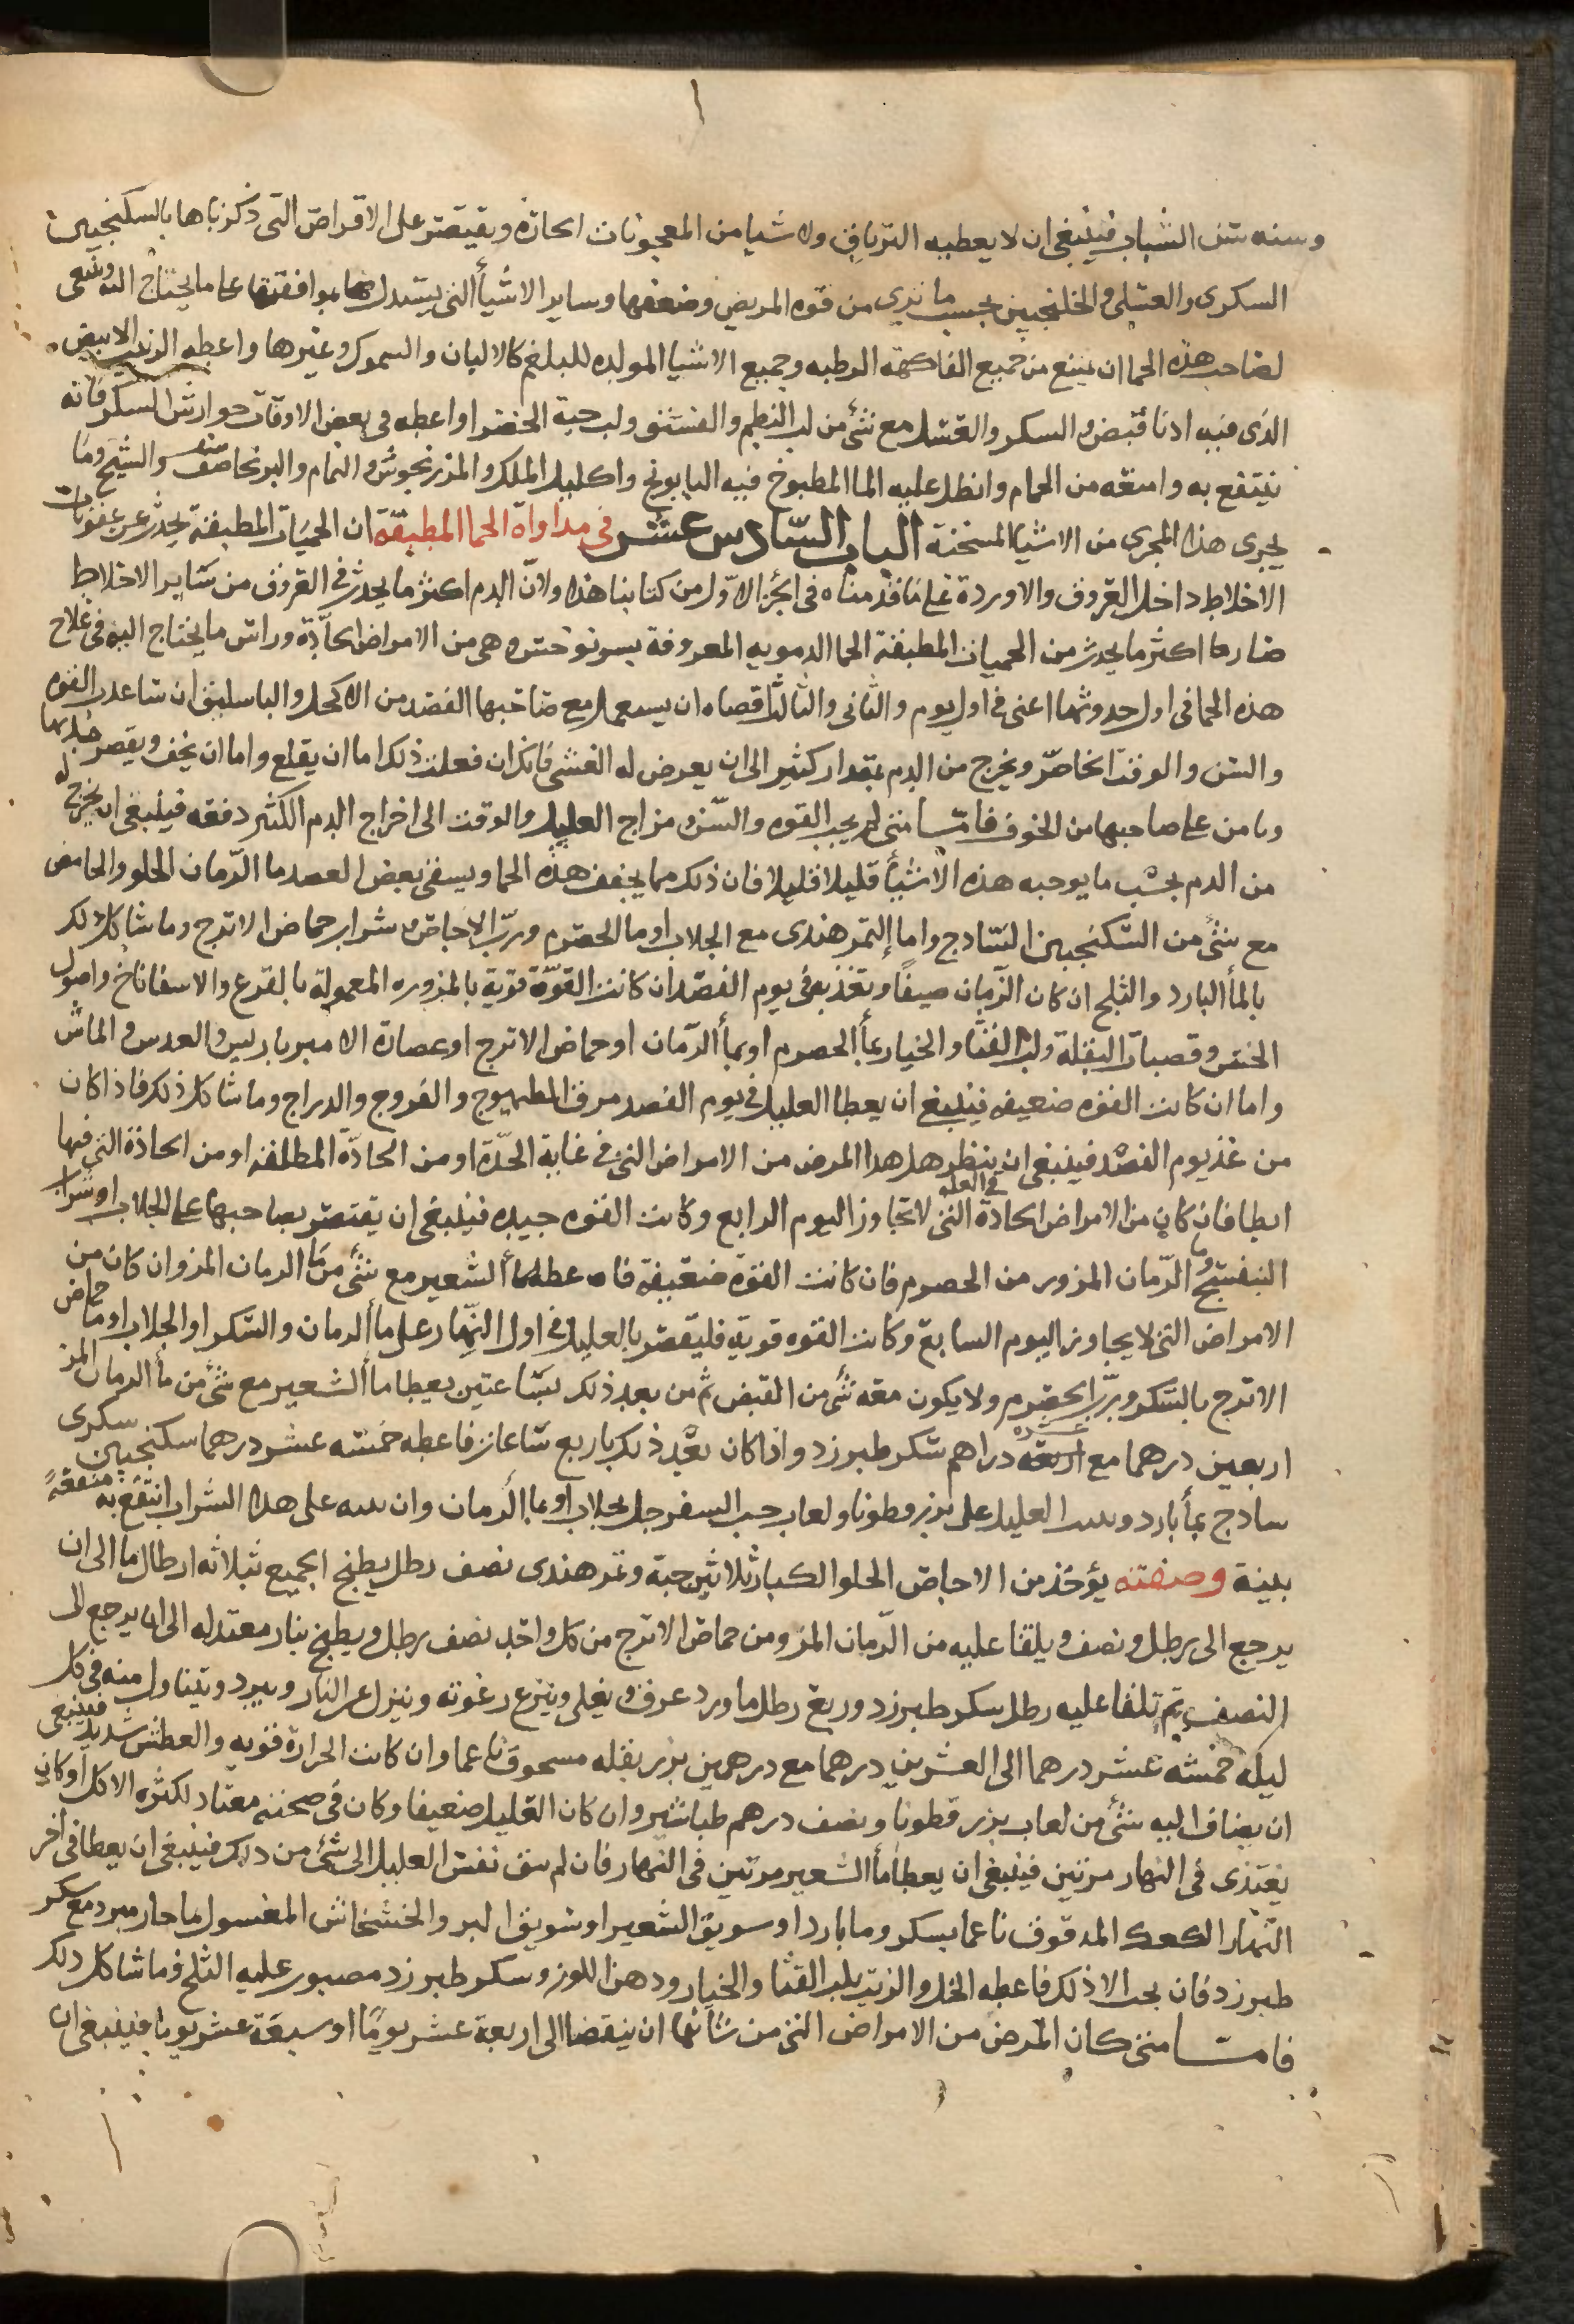 وسنه سن الشباب فينبغي ان لا يعطيه الترياق ولا شيا من المعجونات الحارة ويقتصر على الاقراص التي ذكرناها بالسكنجبين
السكرى والعسلى والخلنجبين بحسب ما ترى من قوه المريض وضعفها وساير الاشيأ التي يستدل بها بموافقتها على ما يحتاج اليه وينبغى
لصاحب هذه الحما ان يمنع من جميع الفاكهة الرطبه وجميع الاشيا المولده للبلغم كالالبان والسموك وغيرها واعطه الزبيب الابيض
الذى فيه ادنا قبض والسكر والعسل مع شئ من لب البطم والفستق ولب حبة الخضرا واعطه في بعض الاوقات جوارش السكر فانه
ينتفع به وامنعه من الحمام وانطل عليه الما المطبوخ فيه البابونج واكليل الملك والمرزنجوش والنمام والبرنجاصف والشيح وما
يجرى هذا المجرى من الاشيا المسخنة الباب السّادس عشر فى مداواة الحما المطبقة ان الحميات المطبقة يحدث عن عفونات
الاخلاط داخل العروق والاوردة على ما قدمناه فى الجز الاوّل من كتابنا هذا ولانّ الدم اكثر ما يحدث فى العروق من ساير الاخلاط
صارما اكثر ما يحدث من الحميات المطبقة الحما الدمويه المعروفة بسونوخس وهى من الامراض الحادّة وراس ما يحتاج اليه فى علاج
هذه الحما فى اول حدوثها اعنى فى اول يوم والثانى والثالث اقصاه ان يستعمل مع صاحبها الفصد من الاكحل والباسليق ان ساعدت القوه
والسن والوقت الحاضر ويخرج من الدم بمقدار كثير الى ان يعرض له الغشى فانك ان فعلت ذلك اما ان يقلع واما ان يخف ويقصر
ويامن على صاحبها من الخوف فامّا متى لم يجب القوه والسّن ومزاج العليل والوقت الى اخراج الدم الكثير دفعه فينبغى ان يخرج له
من الدم بحسب ما يوجبه هذه الاشيأ قليلا قليلا فان ذلك مما يخفف هذه الحما ويسقى بعض العصد ما الرّمان الحلو والحامض
مع شئ من السّكنجبين السّادج واما التمر هندى مع الجلاب او ما الحصرم وربّ الاجاص وشراب حماض الاترج وما شاكل ذلك
بالمأ البارد والثلج ان كان الزّمان صيفًا وتغذيه فى يوم الفصد ان كانت القوّة قوية بالمزوره المعمولة بالقرع والاسفاناخ واصول
الخس وقصبات البقلة ولب القثا والخيار بمأ الحصرم او بمأ الرّمان او حماض الاترج او عصارة الامبرباريس والعدس والماش
واما ان كانت القوه ضعيفه فينبغى ان يعطا العليل فى يوم الفصد مرق الطيهوج والفروج والدراج وما شاكل ذلك فاذا كان
من غد يوم الفصد فينبغى ان ينظر هل هذا المرض من الامراض التى فى غاية الحدّة او من الحادّة المطلقه او من الحادّة التى فيها
ابطا فان كان من الامراض الحادّة فى الغاية التى لا تجاوز اليوم الرابع وكانت القوه جيده فينبغى ان يقتصر بصاحبها على الجلاب او شراب
البنفسج وما الرّمان المزور من الحصرم فان كانت القوّة ضعيفة فاعطه مأ الشعير مع شئ من مَا الرمان المز وان كان من
الامراض التى لا يجاوز اليوم السابع وكانت القوه قويه فليقتصر بالعليل فى اول النهار على مأ الرمان والسّكر او الجلاب او ما حماض
الاترج بالسّكر وربّ الحصرم ولا يكون معه شئ من القبض ثم من بعد ذلك بسّاعتين يعطا مأ الشعير مع شئ من مأ الرمان المز
اربعين درهما مع عشره دراهم سكر طبرزد واذا كان بعد ذلك باربع سّاعات فاعطه خمسه عشر درهما سكنجبين سكرى
ساذج بمأ بارد العليل على بزر قطونا ولعاب حب السفرجل بجلاب او بما الرّمان وان على هذا الشراب انتفع به منفعةً
بينة وصفته يؤخذ من الاجاص الحلو الكبار ثلاثين حبة وتمر هندى نصف رطل يطبخ الجميع بثلاثه ارطال ما الى ان
يرجع الى رطل ونصف ويلقا عليه من الرّمان المز ومن حماض الاترج من كل واحد نصف رطل ويطبخ بنار معتدله الى ان يرجع الى
النصف ثم تلقا عليه رطل سكر طبرزد وربع رطل ما ورد عرق ويغلى وينزع رغوته وينزل عن النار ويبرد ويتناول منه فى كل
ليلة خمسه عشر درهما الى العشرين درهما مع درهمين بزر بقله مسحوق ناعما وان كانت الحرارة قويه والعطش شديد فينبغى
ان يضاف اليه شئ من لعاب بزر قطونا ونصف درهم طباشير وان كان العليل ضعيفا وكان فى صحته معتاد لكثره الاكل او كان
يغتذى فى النهار مرتين فينبغى ان يعطا مأ الشعير مرتين فى النهار فان لم تتق نفس العليل الى شئ من ذلك فينبغى ان يعطا فى اخر
النّهار الكعك المدقوق ناعما بسكر وما بارد او سويق الشعير او سويق البر والخشخاش المغسول بما حار مبرد مع سكر
طبرزد فان يجب الا ذلك فاعطه الخل والزيت بلب القثا والخيار ودهن اللوز وسكر طبرزد مصبوب عليه الثلج وما شاكل ذلك
فامّا متى كان المرض من الامراض التى من شأنها ان ينقضا الى اربعة عشر يومًا او سبعة عشر يوما فينبغى ان